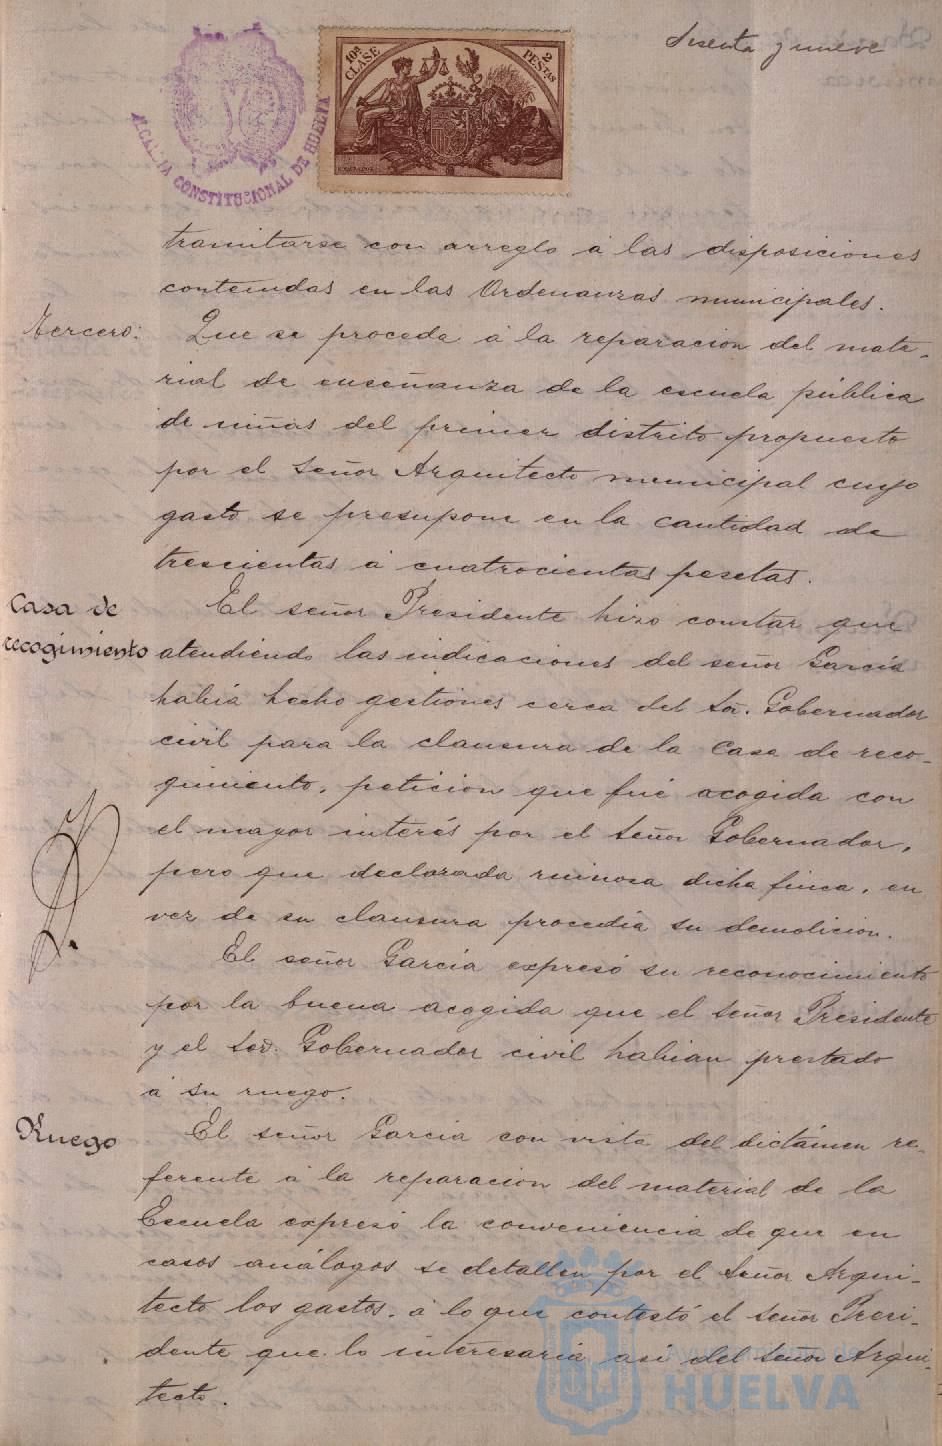 sesenta y nueve
ALCALDIA CONSTITUCIONAL DE HUELVA
10ª CLASE
2 PESTAS
tramitarse con arreglo á las disposiciones
contenidas en las Ordenanzas municipales.
Tercero: Que se proceda á la reparacion del mate-
rial de enseñanza de la escuela pública
de niñas del primer distrito propuesto
por el señor Arquitecto municipal cuyo
gasto se presupone en la cantidad de
trescientas á cuatrocientas pesetas.
Casa de
recogimiento
El señor Presidente hizo constar que
atendiendo las indicaciones del señor García
habia hecho gestiones cerca del Sor. Gobernador
civil para la clausura de la Casa de reco-
gimiento, peticion que fué acogida con
el mayor interés por el Señor Gobernador,
pero que declarada ruinosa dicha finca, en
vez de su clausura procedía su demolicion.
El señor García expresó su reconocimiento
por la buena acogida que el señor Presidente
y el Sor. Gobernador civil habian prestado
á su ruego.
Ruego
El señor García con vista del dictámen re-
ferente á la reparacion del material de la
Escuela expresó la conveniencia de que en
casos análogos se detallen por el Señor Arqui-
tecto los gastos, á lo que contestó el señor Presi-
dente que lo interesaría así del Señor Arqui-
tecto.
Ayuntamiento de
HUELVA